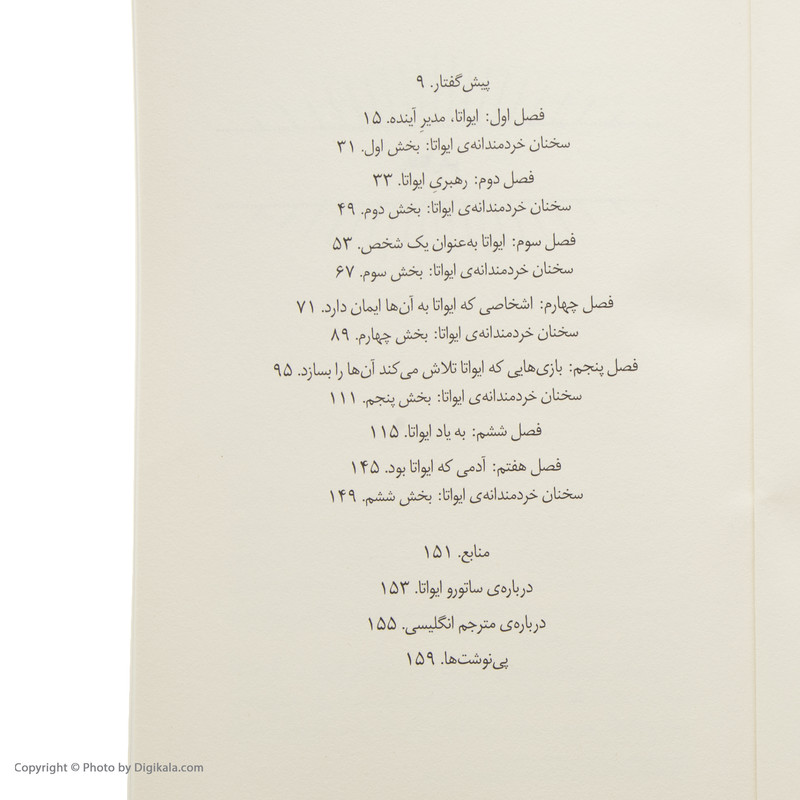 پیش‌گفتار. ۹
فصل اول: ایواتا، مدیرِ آینده. ۱۵
سخنان خردمندانه‌ی ایواتا: بخش اول. ۳۱
فصل دوم: رهبریِ ایواتا. ۳۳
سخنان خردمندانه‌ی ایواتا: بخش دوم. ۴۹
فصل سوم: ایواتا به‌عنوان یک شخص. ۵۳
سخنان خردمندانه‌ی ایواتا: بخش سوم. ۶۷
فصل چهارم: اشخاصی که ایواتا به آن‌ها ایمان دارد. ۷۱
سخنان خردمندانه‌ی ایواتا: بخش چهارم. ۸۹
فصل پنجم: بازی‌هایی که ایواتا تلاش می‌کند آن‌ها را بسازد. ۹۵
سخنان خردمندانه‌ی ایواتا: بخش پنجم. ۱۱۱
فصل ششم: به یاد ایواتا. ۱۱۵
فصل هفتم: آدمی که ایواتا بود. ۱۴۵
سخنان خردمندانه‌ی ایواتا: بخش ششم. ۱۴۹
منابع. ۱۵۱
درباره‌ی ساتورو ایواتا. ۱۵۳
درباره‌ی مترجم انگلیسی. ۱۵۵
پی‌نوشت‌ها. ۱۵۹
Copyright © Photo by Digikala.com